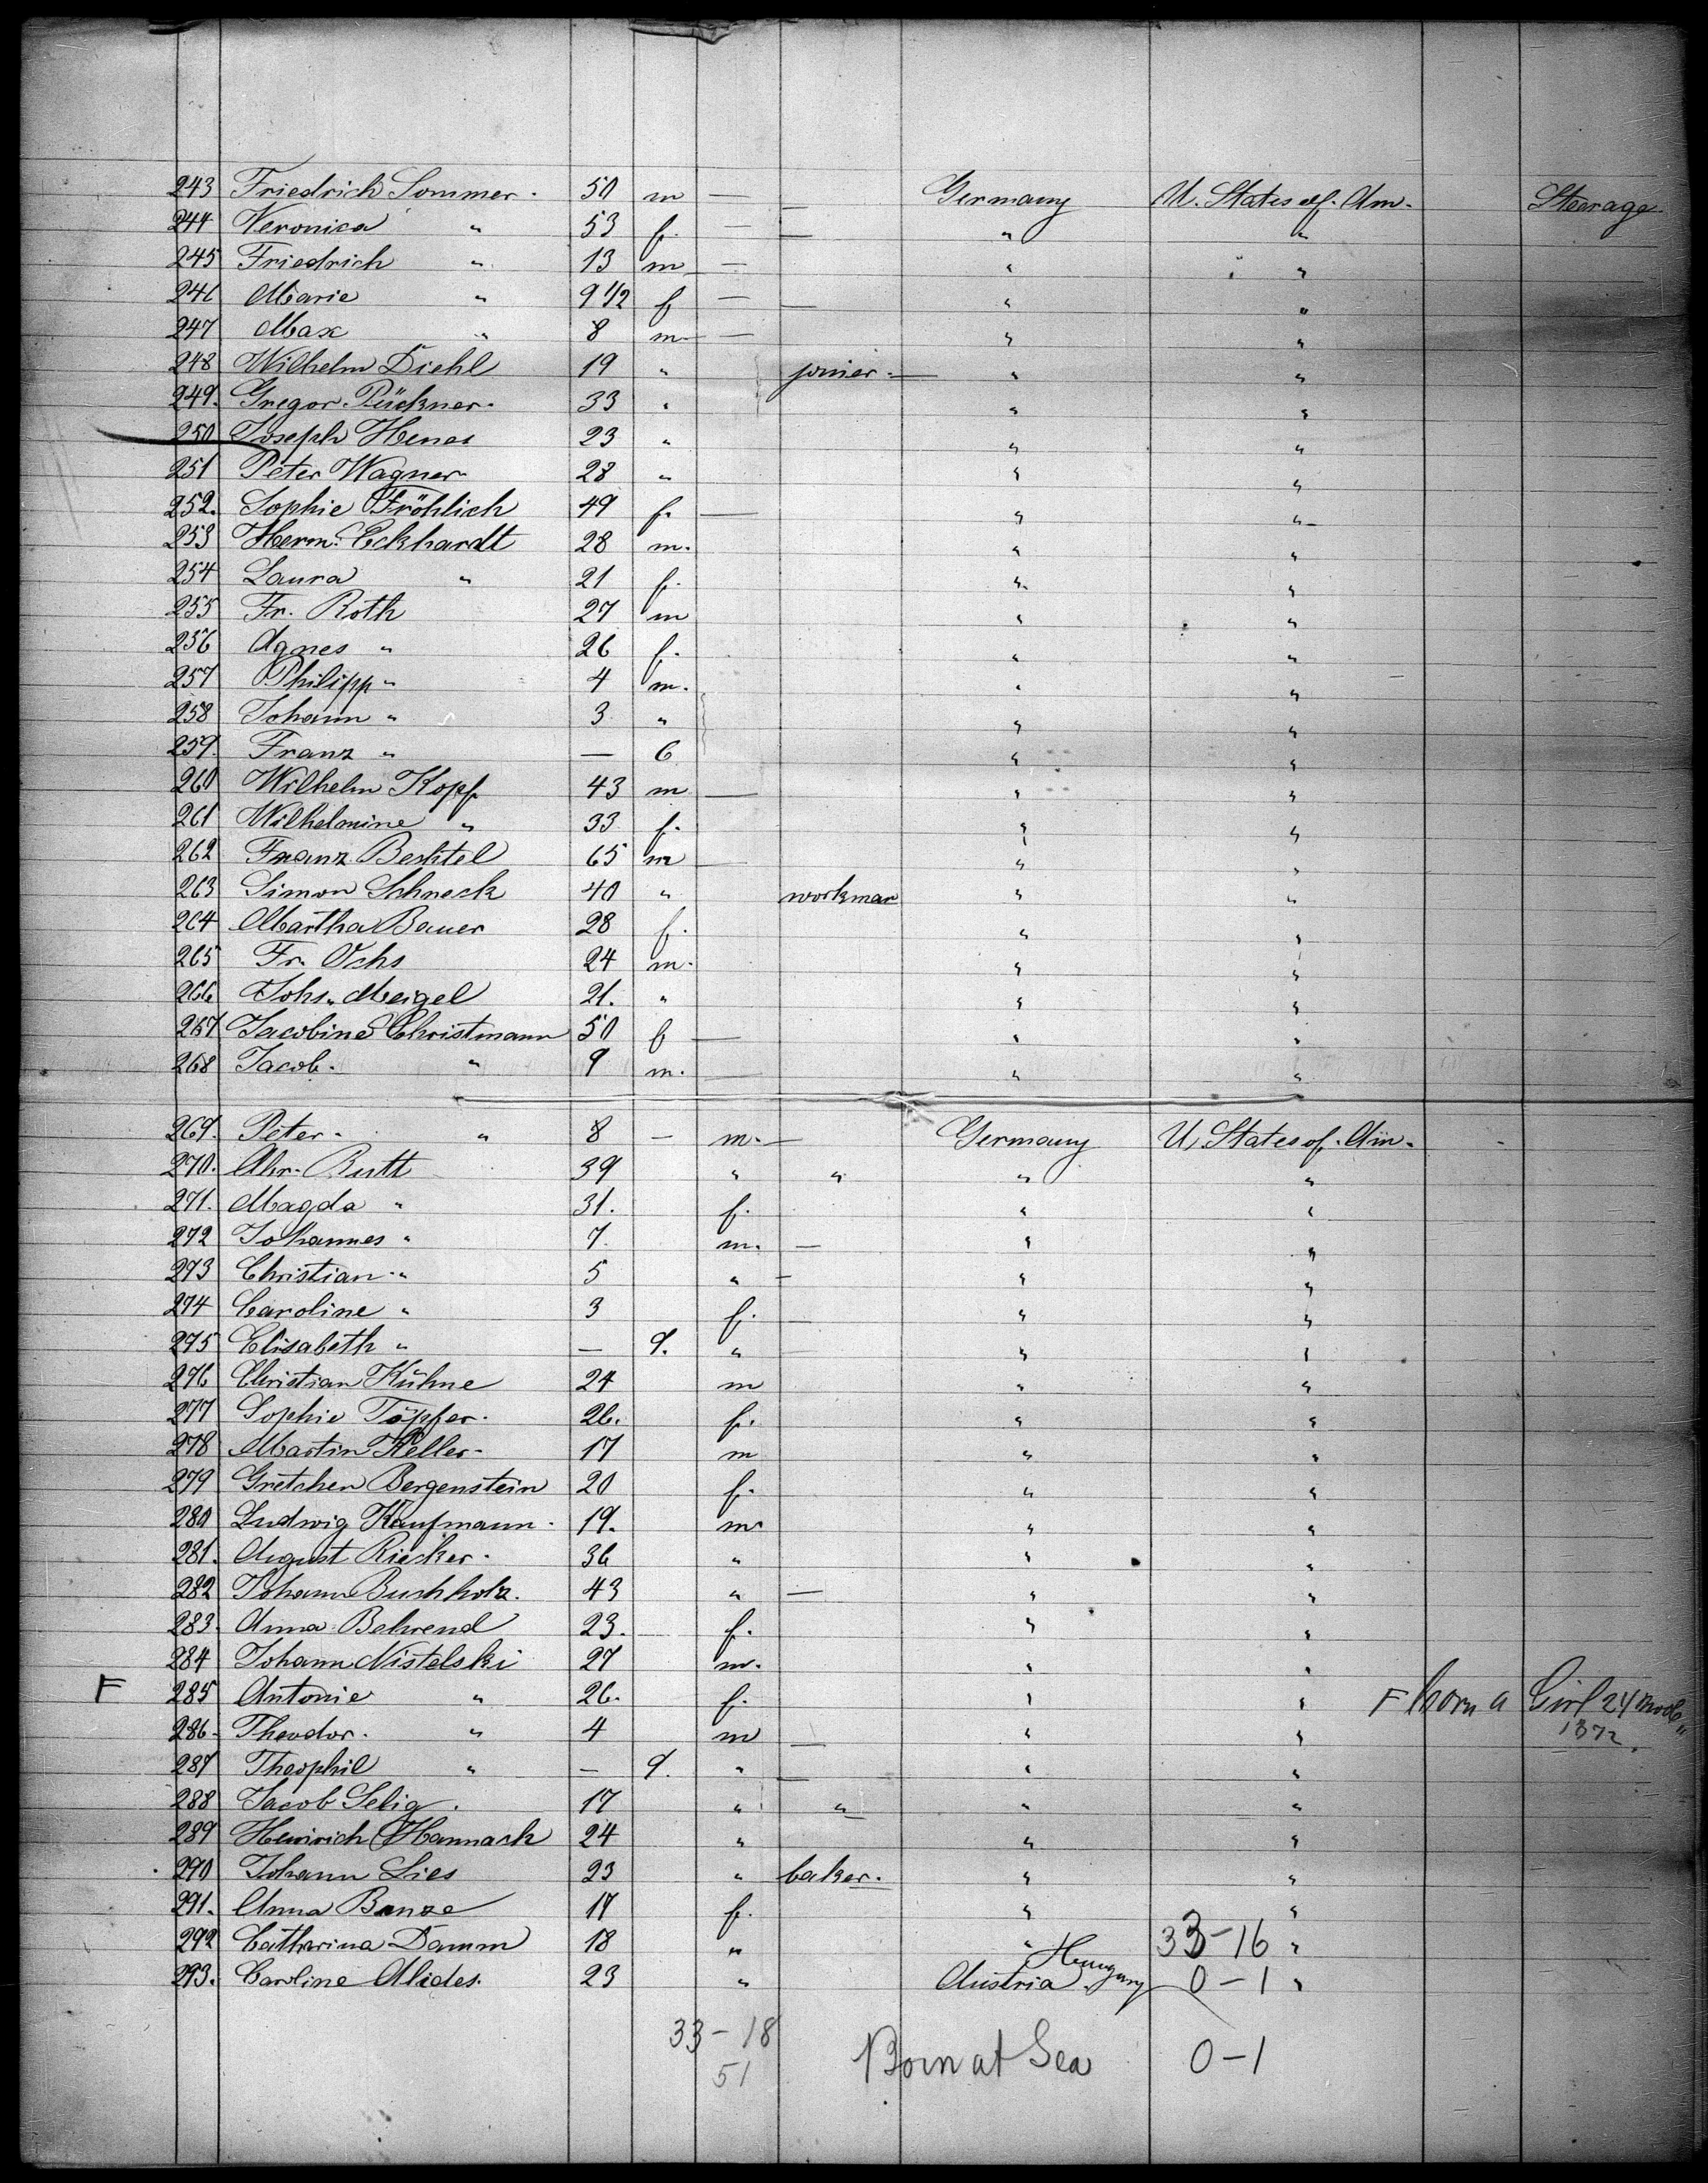 243 Friedrich Sommer. 50 m — — Germany U. States of. Am. Steerage.
244 Veronica " 53 f. — — " "
245 Friedrich " 13 m — " "
246 Marie " 9 1/2 f — — " "
247 Max " 8 m — " "
248 Wilhelm Diehl 19 " joiner. — " "
249. Gregor. Pückner. 33 " " "
250 Joseph Henes 23 " " "
251 Peter Wagner 28 " " "
252. Sophie Fröhlich 49 f. — " "
253 Herm. Eckhardt 28 m. " "
254 Laura " 21 f. " "
255 Fr. Roth 27 m " "
256 Agnes " 26 f. " "
257 Philipp " 4 m. " "
258 Johann " 3 " " "
259. Franz " — 6 " "
260 Wilhelm Kopf 43 m — " "
261 Wilhelmine " 33 f. " "
262 Franz Bechtel 65 m — " "
263 Simon Schneck 40 " workman " "
264 Martha Bauer 28 f. " "
265 Fr. Ochs 24 m. " "
266 Johs. Meigel 21. " " "
267 Jacobine Christmann 50 f — " "
268 Jacob. " 9 m. — " "
269. Peter. " 8 — m. — Germany U. States of. Am.
270. Chr. Rutt 39 " " " "
271. Magda " 31. f. " "
272 Johannes " 7. m. — " "
273 Christian " 5 " — " "
274 Caroline " 3 f. — " "
275 Elisabeth " — 9. " " "
276 Christian Kühne 24 m " "
277 Sophie Töpfer. 26. f. " "
278 Martin Keller. 17 m " "
279 Gretchen Bergenstein 20 f. " "
280 Ludwig Kaufmann. 19. m. " "
281. August Riecker. 36 " " "
282 Johann Buchholz. 43 " — " "
283. Anna Behrend 23. f. " "
284 Johann Nistelski 27 m. " "
F 285 Antonie " 26. f. " " F born a Girl 24
286. Theodor. " 4 m — " " 1872.
287 Theophil " — 9. " — " "
288 Jacob Selig. 17 " " " "
289 Heinrich Hannach 24 " " "
290 Johann Lies 23 " baker. " "
291. Anna Banze 17 f. " "
292 Catharina Damm 18 " " 33-16 "
293. Caroline 23 " Austria Hungary 0-1 "
33-18
51 Born at Sea 0-1